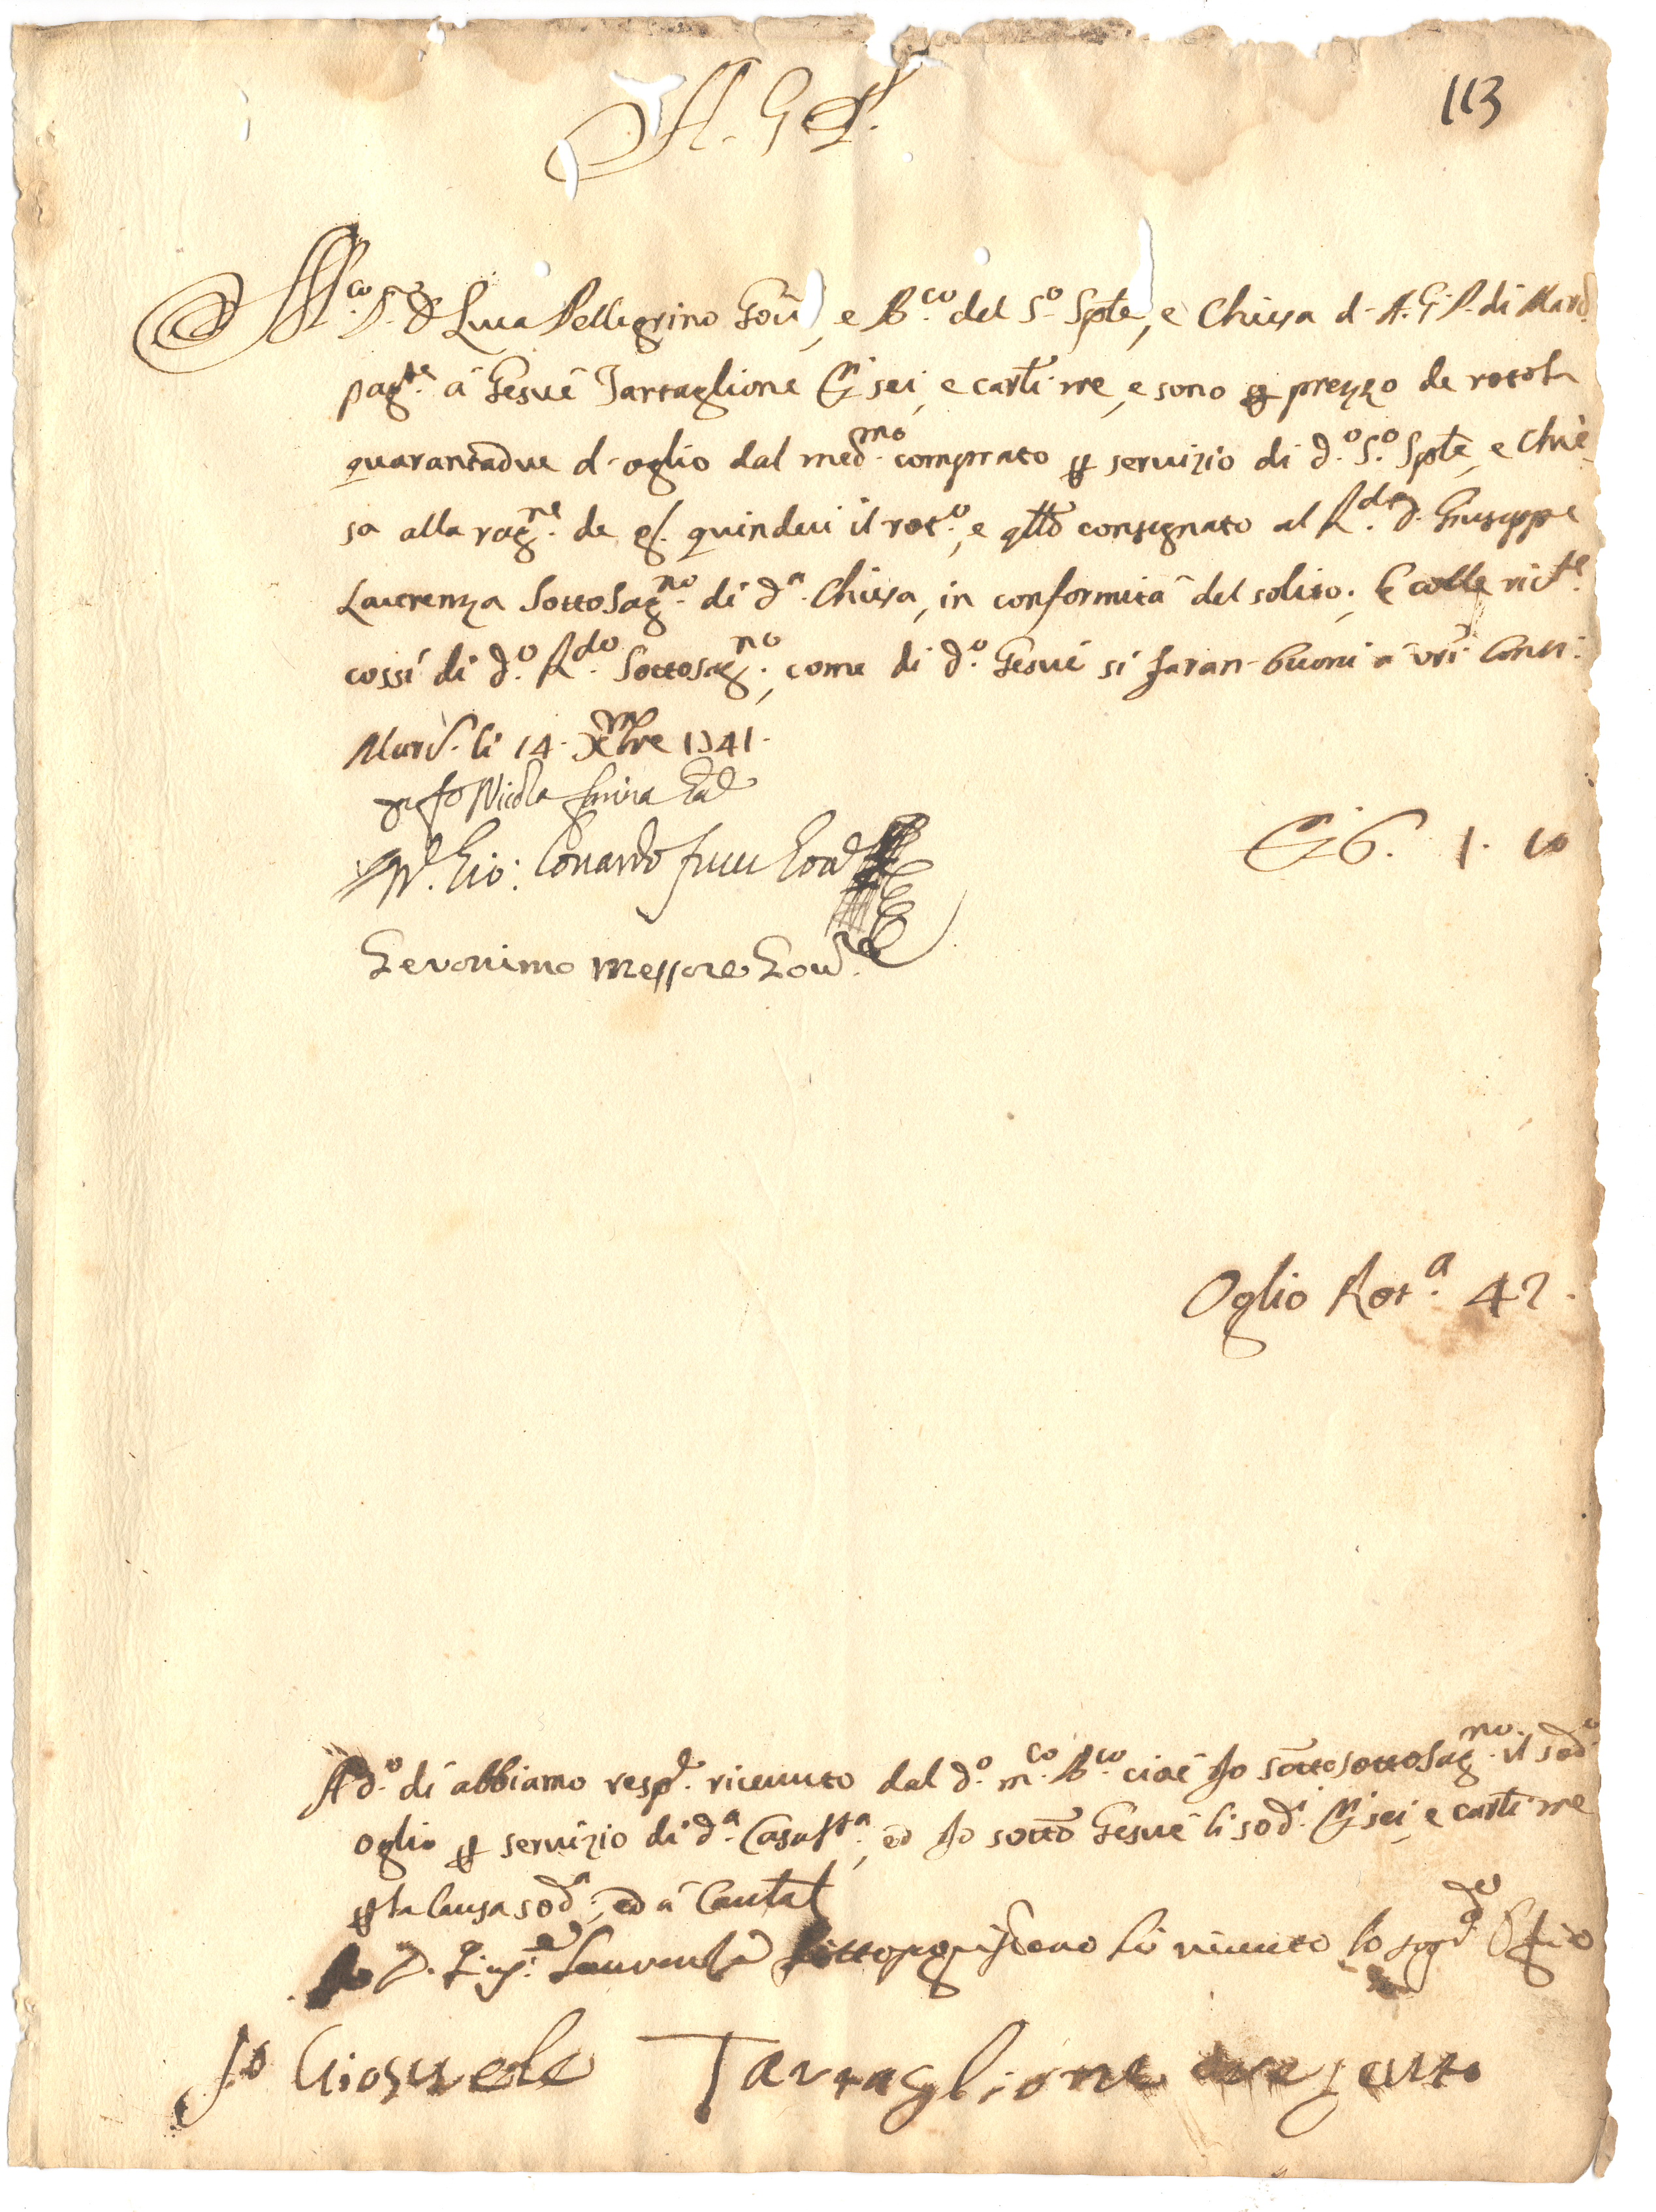 A. G. P.
113
M.co D.r D. Luca Pellegrino Gov, e B.co del S.o Sple, e Chiesa d. A. G. P. di Marc.
pag.te à Gesuè Tartaglione D.ti sei, e carli tre, e sono p prezzo de rotola
quarantadue d'oglio dal med.mo comprato p servizio di d.o S.o Sple, e Chie
sa alla rag.ne de g. quindeci il rot.o, e qllo consegnato al R.do D. Giuseppe
Laurenza Sottosag.no di d.a Chiesa, in conformità del solito; E colle ric.te
cossì di d.o R.do Sottosag.no, come di d.o Gesuè si faran buoni a vri Conti.
Marc. li 14. Xmbre 1741.
Nicola Gov
Gio: Gov
Geronimo Messore Gov.re
D.ti 6. 1. 10
Oglio Rot.a 42.
A d.o dì abbiamo resp.e ricevuto dal d.o m.co B.co cioè Io sotto sottosag.no il sod.o
oglio p servizio di d.a Casa S.ta, ed Io sotto Gesuè li sod.i D.ti sei, e carli tre
p la causa sod.a; ed a Cautel
Io D. Gius.e Laurenza Sottosagristano hò ricevuto lo sop.d.o Oglio
Io Giosuele Tartaglione ricevuto